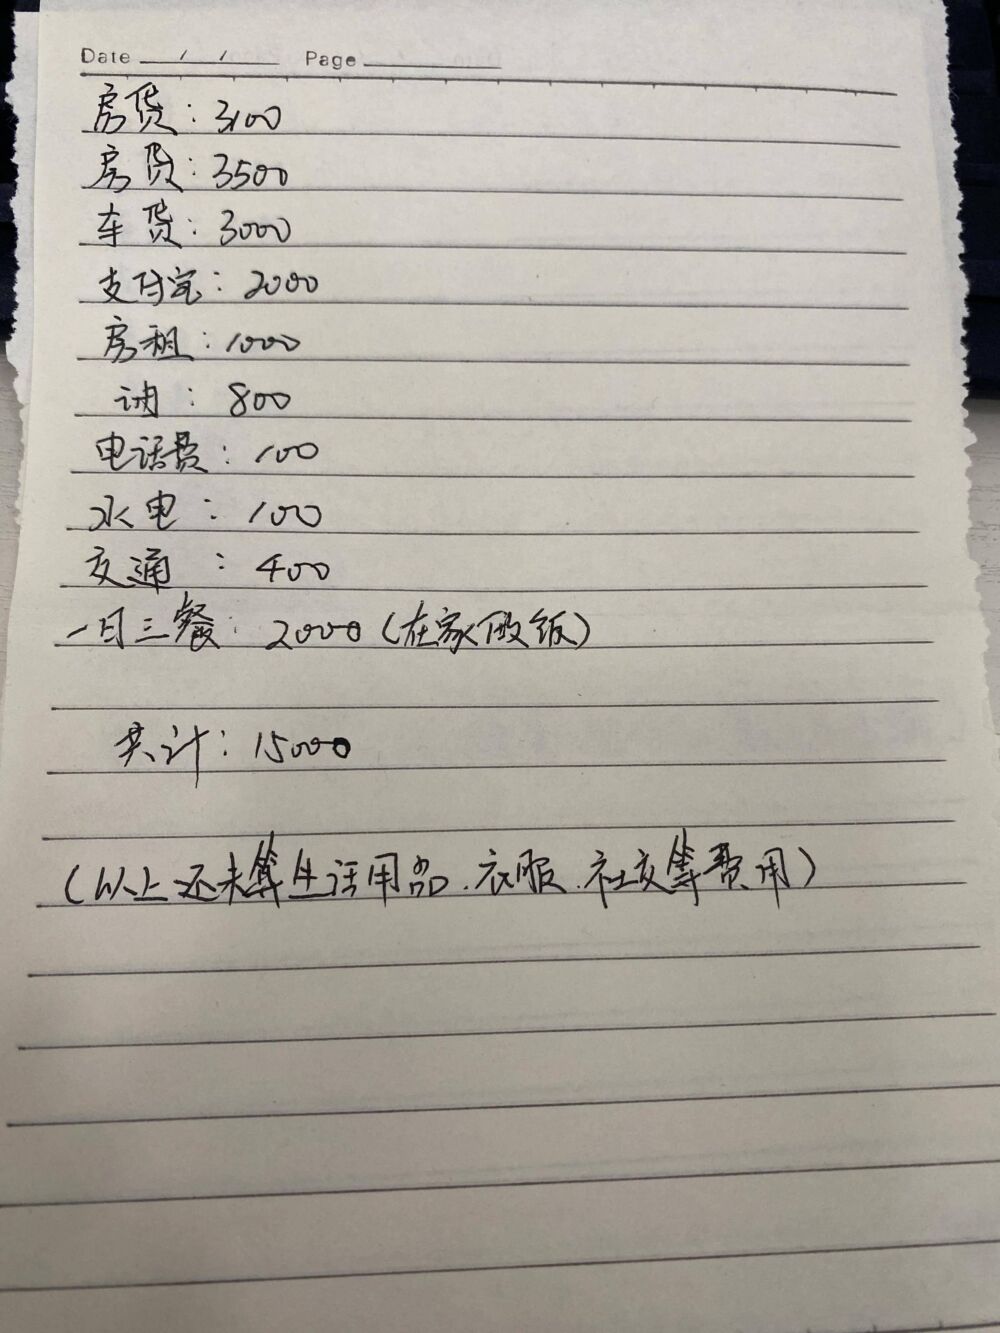 Date / / Page
房贷：3100
房贷：3500
车贷：3000
支付宝：2000
房租：1000
：800
电话费：100
水电：100
交通：400
一日三餐：2000（在家做饭）
共计：15000
（以上还未算生活用品、衣服、社交等费用）